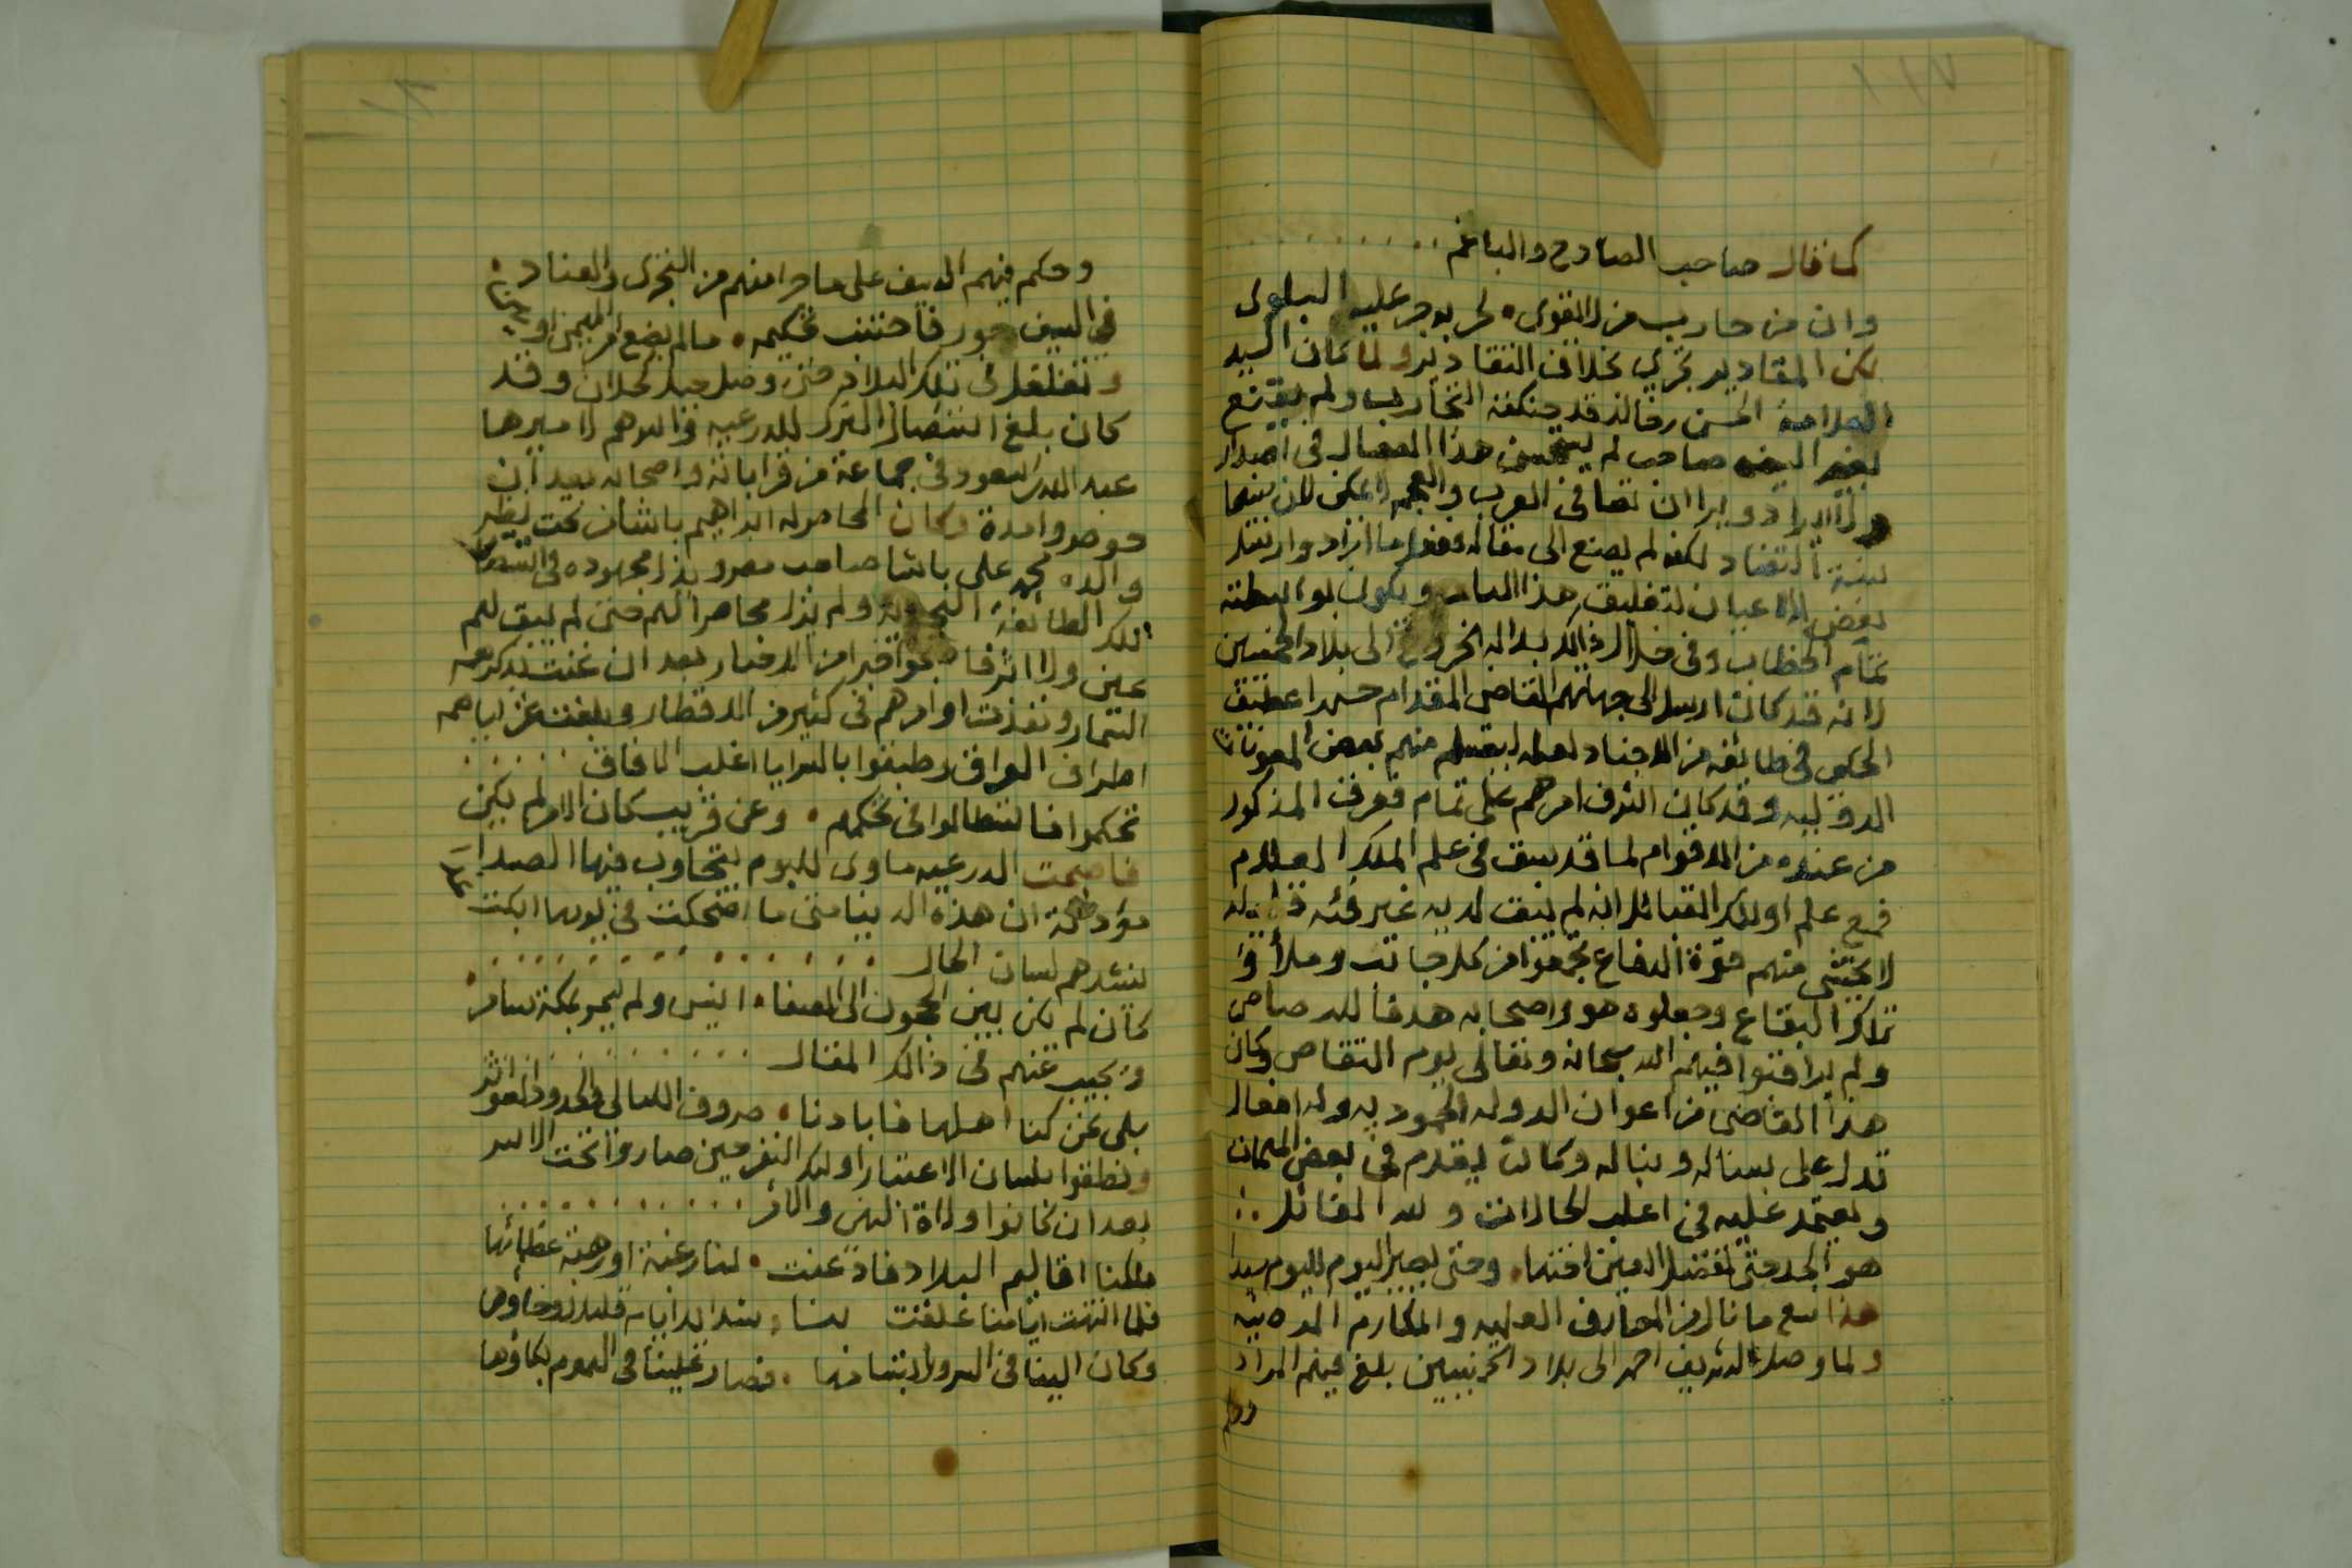 كما قال صاحب الصادح والباغم
وان من حارب من لا يقوى • لحربه جر عليه البلوى
لكن المقادير تجري بخلاف التقادير ولما كان السيد
العلامة الحسن بن خالد قد حنكته التجارب ولم يقنع
صاحب لم يستحسن هذا المقال في اصدار
ولا ايراد ويرا ان تصافي العرب والعجم لا يمكن لان بينهما
نسبة التضاد لكنه لم يصغ الى مقاله ففعل ما اراد وارسل
بعض الاعيان لتغليق هذا الباب ويكون بواسطته
تمام الخطاب وفي خلال ذالك بدا له الخروج الى بلاد
لانه قد كان ارسل الى جهاتهم القاضي المقدام حسن بن عطيف
الحكمي في طائفة من الاجناد لعله يتسلم منهم بعض المعونات
الدولية وقد كان الشرف امرهم على تمام فعرف المذكور
من عنده من الاقوام لما قد سبق في علم الملك العلام
فمع علم اولئك القبائل انه لم يبق لديه غير فئة قليله
لا يخشى منهم قوة الدفاع تجمعوا من كل جانب وملأوا
تلك البقاع وجعلوه هو واصحابه هدفا للرصاص
ولم يراقبوا فيهم الله سبحانه وتعالى يوم القصاص وكان
هذا القاضي من اعوان الدولة الحمودية وله افعال
تدل على بساله ونباله وكان يقدم في بعض المهمات
ويعتمد عليه في اغلب الحالات ولله القائل :.
هو الجد حتى تفضل العين اختها • وحتى يصير اليوم لليوم سيدا
هذا مع ما نال من المعارف العلمية والمكارم
ولما وصل الشريف احمد الى بلاد بلغ فيهم المراد
وحكم
وحكم فيهم السيف على ما جرا منهم من التجري والعناد :
في السيف جور فاجتنب تحكيمه • ما لم يضع امر المهيمن او
وتغلغل في تلك البلاد حتى وصل جبل كحلان وقد
كان بلغ استئصال الترك للدرعيه وانزالهم لاميرها
عبد الله بن سعود في جماعة من قراباته واصحابه بعد ان
حوصروا مدة وكان المحاصر له ابراهيم باشا من تحت نظر
والده محمد علي باشا صاحب مصر وبذل مجهوده في استئصال
تلك الطائفة النجدية ولم يزل محاصرا لهم حتى لم يبق لهم
عين ولا اثر فاصبحوا خبرا من الاخبار بعد ان غنت بذكرهم
السمار ونفذت اوامرهم في كثير من الاقطار وبلغت غزاياهم
اطراف العراق وطبقوا بالسرايا اغلب الافاق
تحكموا فاستطالوا في تحكمهم • وعن قريب كان الامر لم يكن
فاصبحت الدرعيه ماوى للبوم يتجاوب فيها الصدا
ان هذه الدنيا متى ما اضحكت في يومها ابكت غدا
ينشدهم لسان الحال
كان لم يكن بين الحجون الى الصفا • انيس ولم يسمر بمكة سامر
ويجيب عنهم في ذالك المقال
بلى نحن كنا اهلها فابادنا • صروف الليالي والجدود العواثر
ونطقوا بلسان الاعتبار اولئك النفر حين صاروا تحت الاسر
بعد ان كانوا ولاة النهي والامر
ملكنا اقاليم البلاد فاذعنت • لنا رغبة او رهبة عظمائها
فلما انتهت ايامنا علقت بنا • شدايد ايام قليل رخاؤها
وكان الينا في السرور ابتسامها • فصار علينا في الهموم بكاؤها